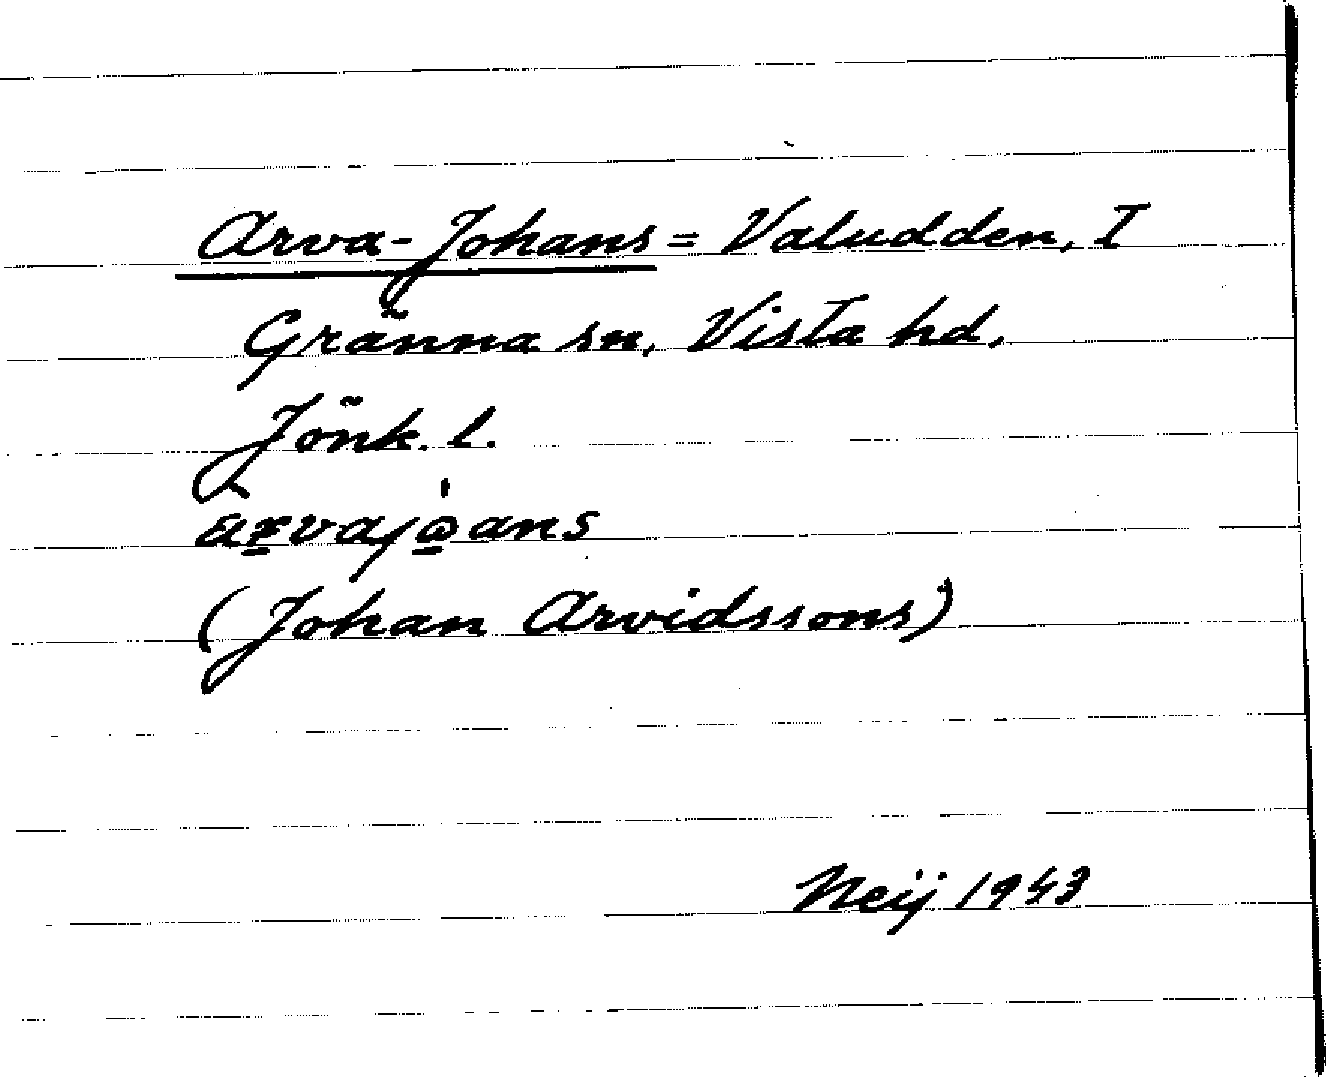 Arva-Johans = Valudden, I
Gränna sn, Vista hd,
Jönk. l.
(Johan Arvidssons)
Neij 1943